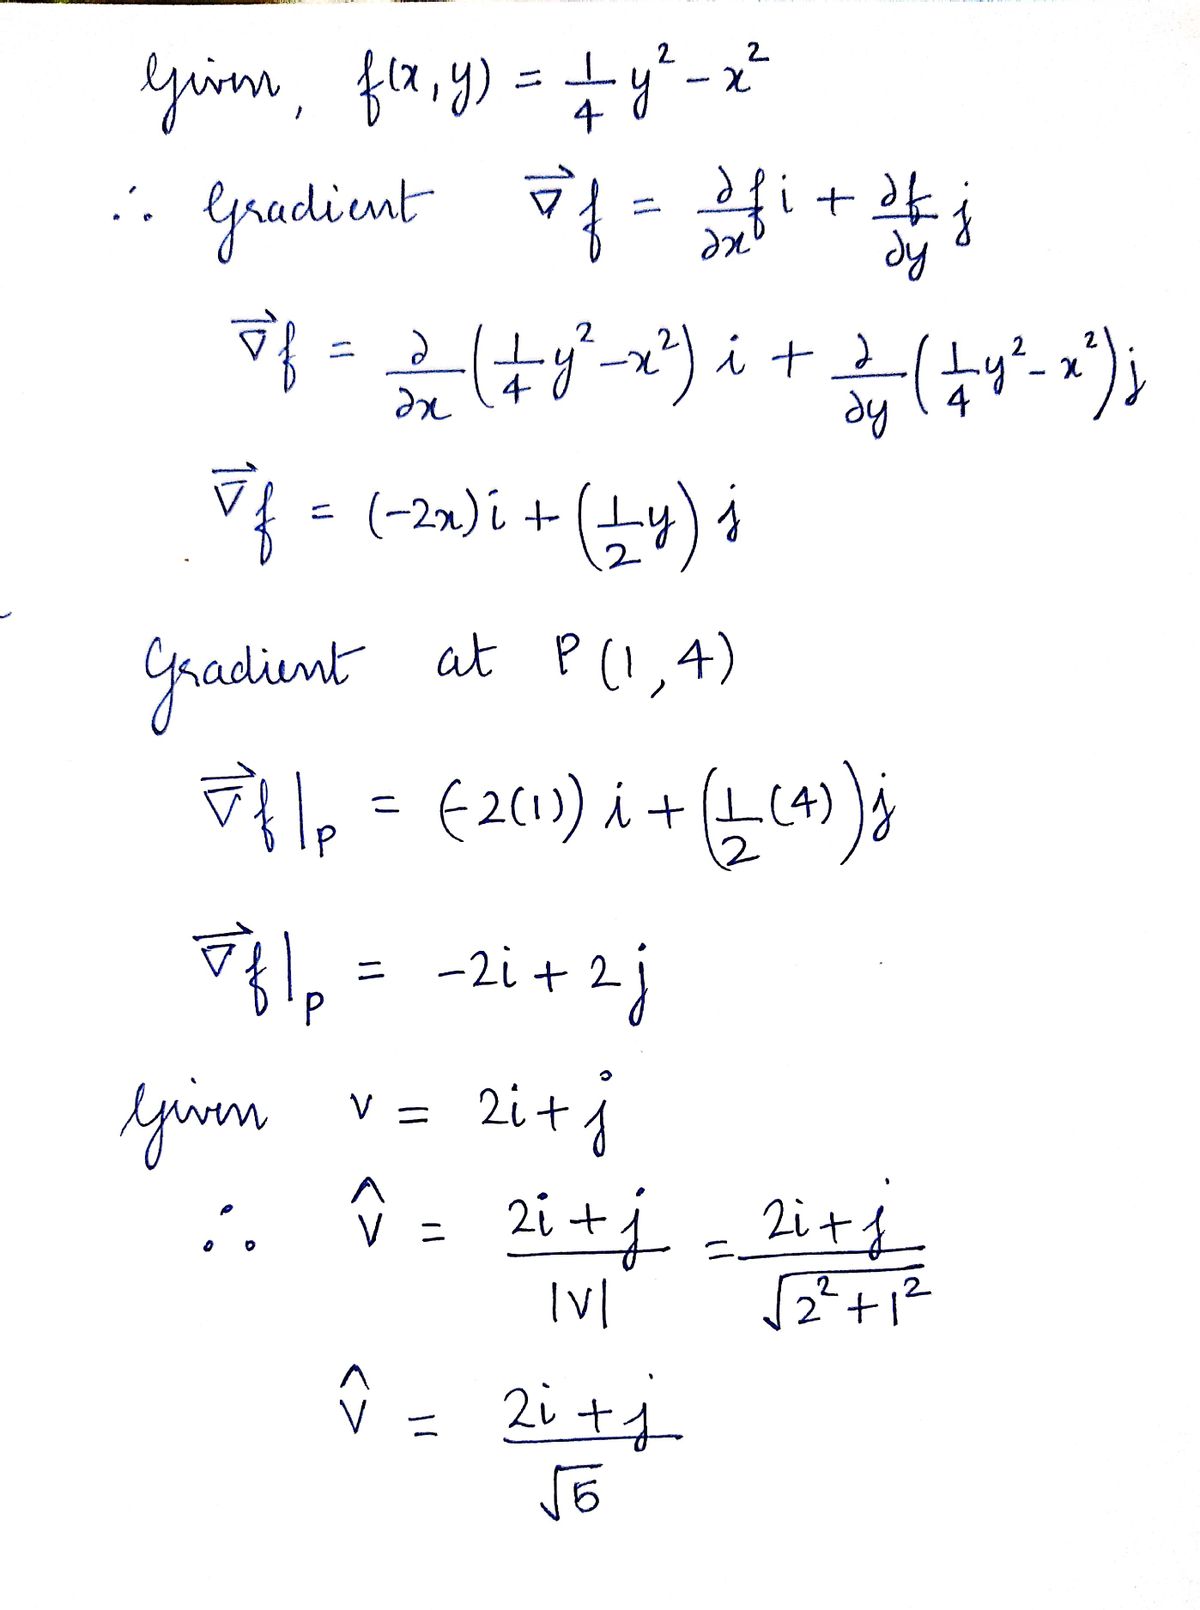 Given, f(x,y) = 1/4 y² - x²
∴ Gradient ∇⃗f = ∂f/∂x i + ∂f/∂y j
∇⃗f = ∂/∂x (1/4 y² - x²) i + ∂/∂y (1/4 y² - x²) j
∇⃗f = (-2x) i + (1/2 y) j
Gradient at P (1, 4)
∇⃗f|p = (-2(1)) i + (1/2 (4)) j
∇⃗f|p = -2i + 2j
Given v = 2i + j
∴ v̂ = 2i + j / |v| = 2i + j / √2² + 1²
v̂ = 2i + j / √5